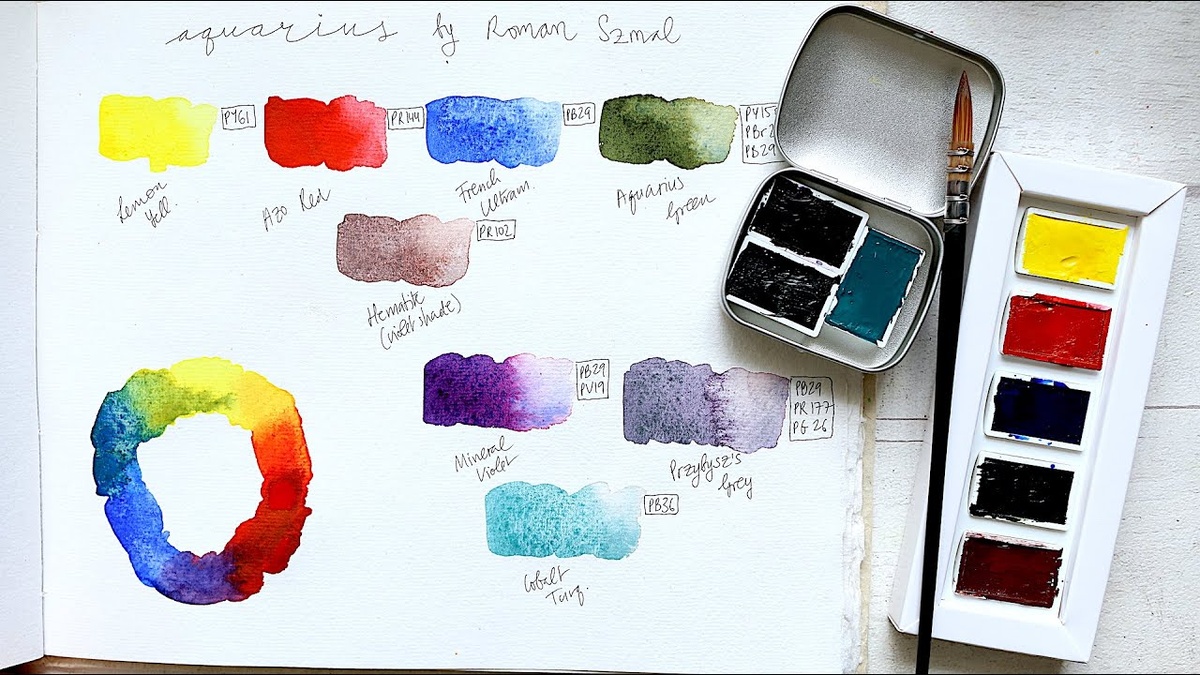 aquarius by Roman Szmal
PY61
PR144
PB29
PY15
PBr2
PB29
Lemon
Yell.
Azo Red
French
Ultram.
Aquarius
Green
PR102
Hematite
(violet shade)
PB29
PV19
PB29
PR177
PG26
Mineral
Violet
Przybysz's
Grey
PB36
Cobalt
Turq.